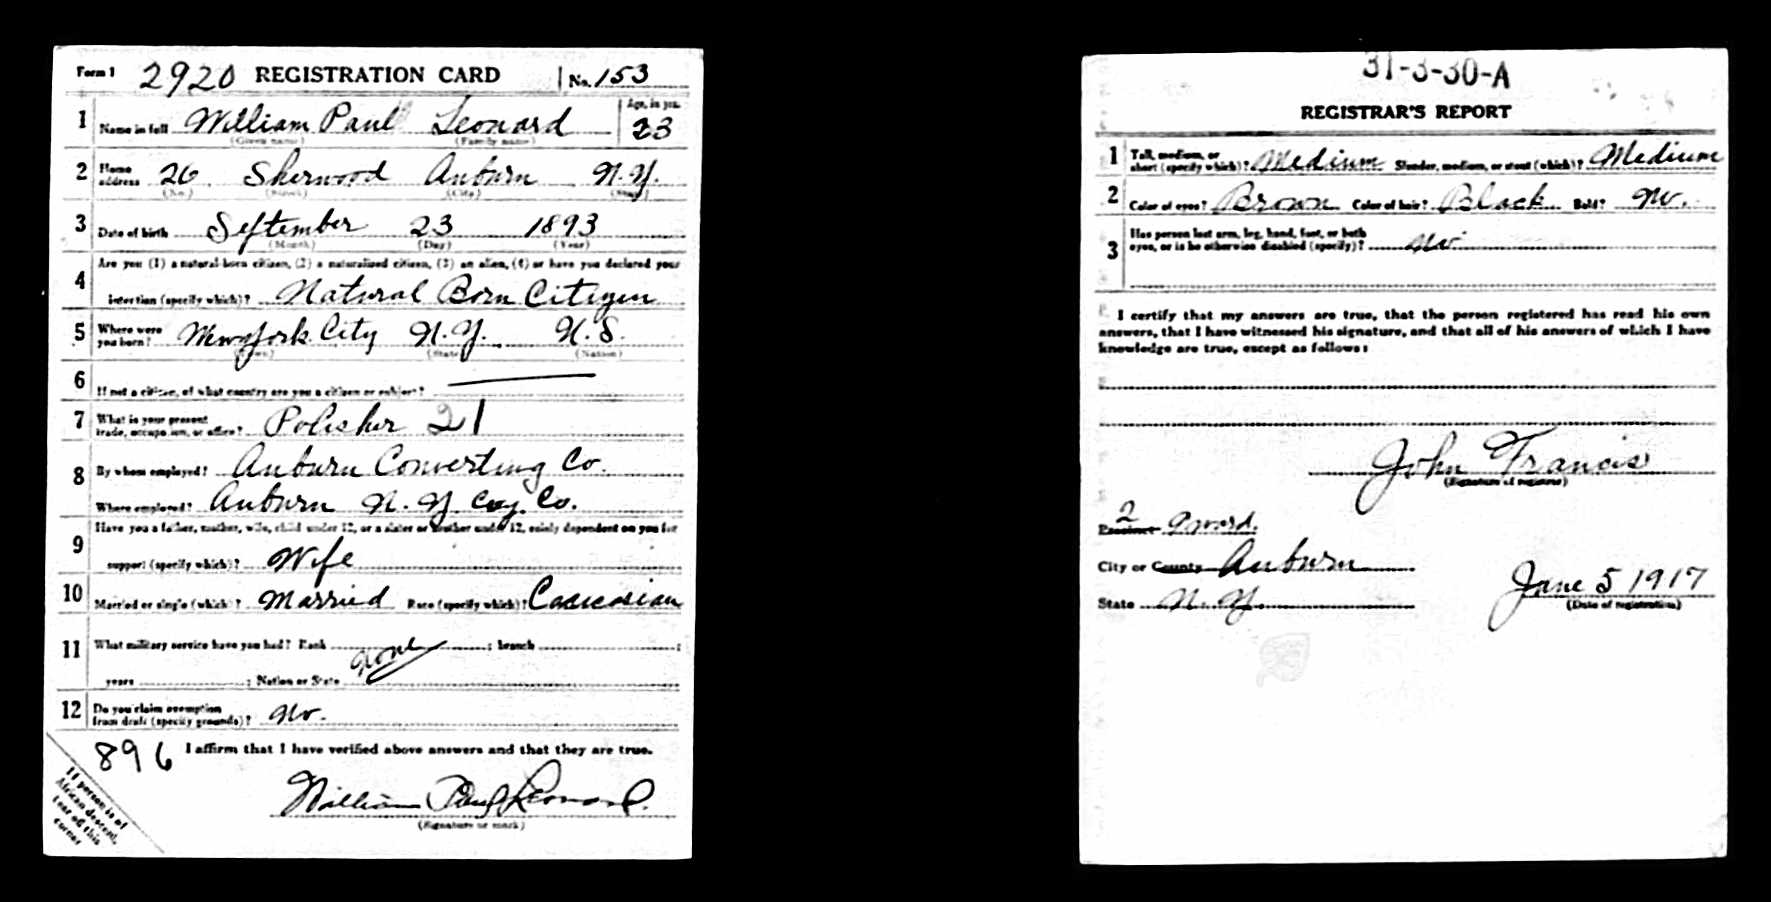 Form 1 2920 REGISTRATION CARD No. 153
1 Name in full William Paul Leonard Age, in yrs. 23
(Given name) (Family name)
2 Home address 26 Sherwood Auburn N.Y.
(No.) (Street) (City) (State)
3 Date of birth September 23 1893
(Month) (Day) (Year)
Are you (1) a natural-born citizen, (2) a naturalized citizen, (3) an alien, (4) or have you declared your
4 intention (specify which)? Natural Born Citizen
5 Where were you born? New York City N.Y. U.S.
(Town) (State) (Nation)
6 If not a citizen, of what country are you a citizen or subject?
7 What is your present trade, occupation, or office? Polisher 21
8 By whom employed? Auburn Converting Co.
Where employed? Auburn N.Y. Co.
Have you a father, mother, wife, child under 12, or a sister or brother under 12, solely dependent on you for
9 support (specify which)? Wife
10 Married or single (which)? Married Race (specify which)? Caucasian
11 What military service have you had? Rank none ; branch ;
years ; Nation or State
12 Do you claim exemption from draft (specify grounds)? No.
896 I affirm that I have verified above answers and that they are true.
William Paul Leonard.
(Signature or mark)
If person is of
African descent,
tear off this
corner
31-3-30-A
REGISTRAR'S REPORT
1 Tall, medium, or short (specify which)? Medium Slender, medium, or stout (which)? Medium
2 Color of eyes? Brown Color of hair? Black Bald? No.
3 Has person lost arm, leg, hand, foot, or both eyes, or is he otherwise disabled (specify)? No
I certify that my answers are true, that the person registered has read his own
answers, that I have witnessed his signature, and that all of his answers of which I have
knowledge are true, except as follows:
John Francis
(Signature of registrar)
Precinct 2 ward.
City or County Auburn
State N.Y.
June 5 1917
(Date of registration)